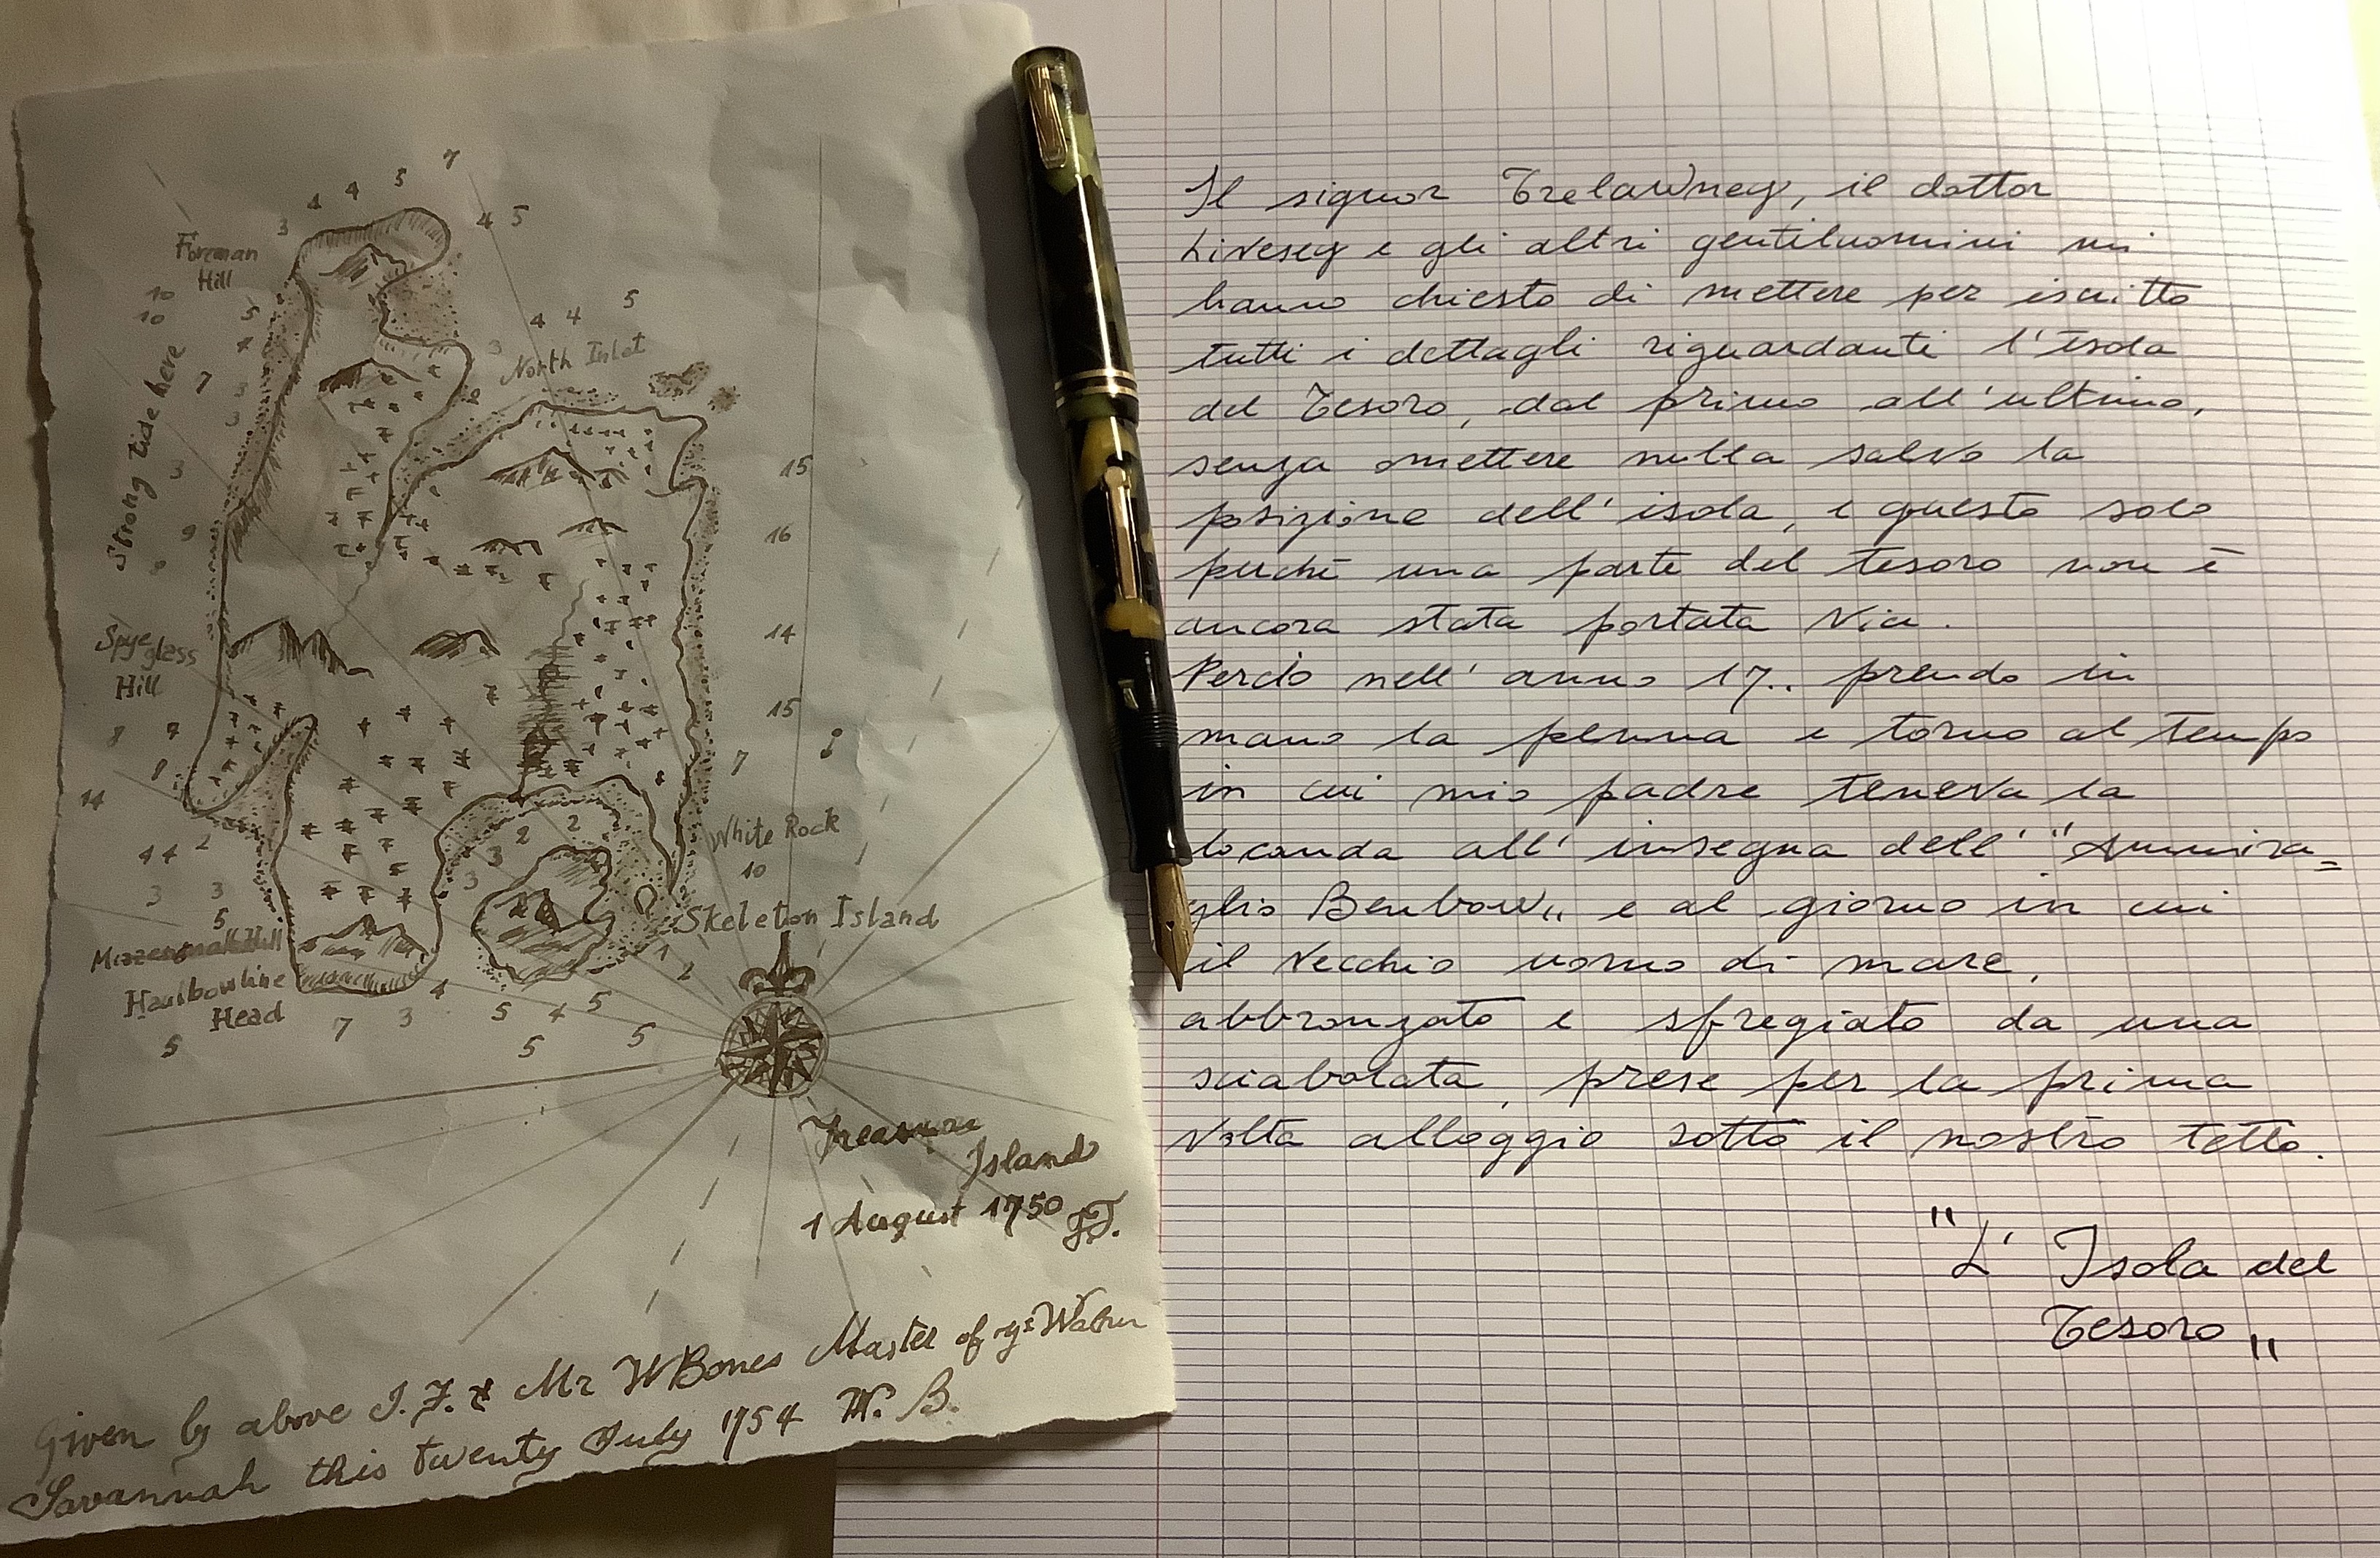 7
3 4 4 5
4 5
Foreman
Hill
10
10
5
4
7
3
3
Strong tide here
3
9
5
4 4
3
North Inlet
2
15
16
14
15
7
Spye glass
Hill
8 4
9
14
2
4 4
3 3
5
2 2
3
3
White Rock
10
Skeleton Island
1
2
Haulbowline
Head
5
7 3 4
5 4 5
5 5
Treasure
Island
1 August 1750 J.F.
Given by above J.F. & Mr W Bones Master of ye Walrus
Savannah this twenty July 1754 W. B.
Il signor Trelawney, il dottor
Livesey e gli altri gentiluomini mi
hanno chiesto di mettere per iscritto
tutti i dettagli riguardanti l'Isola
del Tesoro, dal primo all'ultimo,
senza omettere nulla salvo la
posizione dell'isola, e questo solo
perché una parte del tesoro non è
ancora stata portata via.
Perciò nell'anno 17.. prendo in
mano la penna e torno al tempo
in cui mio padre teneva la
locanda all'insegna dell' "Ammira=
glio Benbow„ e al giorno in cui
il vecchio uomo di mare,
abbronzato e sfregiato da una
sciabolata, prese per la prima
volta alloggio sotto il nostro tetto.
"L'Isola del
Tesoro„